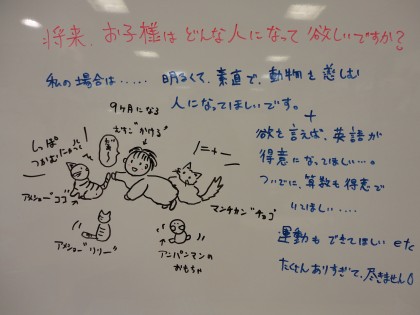 将来、お子様はどんな人になって欲しいですか?
私の場合は.....明るくて、素直で、動物を慈しむ
人になってほしいです。
+
欲を言えば、英語が
得意になってほしい...。
ついでに、算数も得意で
いてほしい....
運動もできてほしい etc
たくさんありすぎて、尽きません
9ヶ月になる
むすこ"かける"
しっぽ
つかむにゃっ!
だぁ〜
アメショー"ココ"
マンチカン"チョコ"
アメショー"リリー"
アンパンマンの
おもちゃ